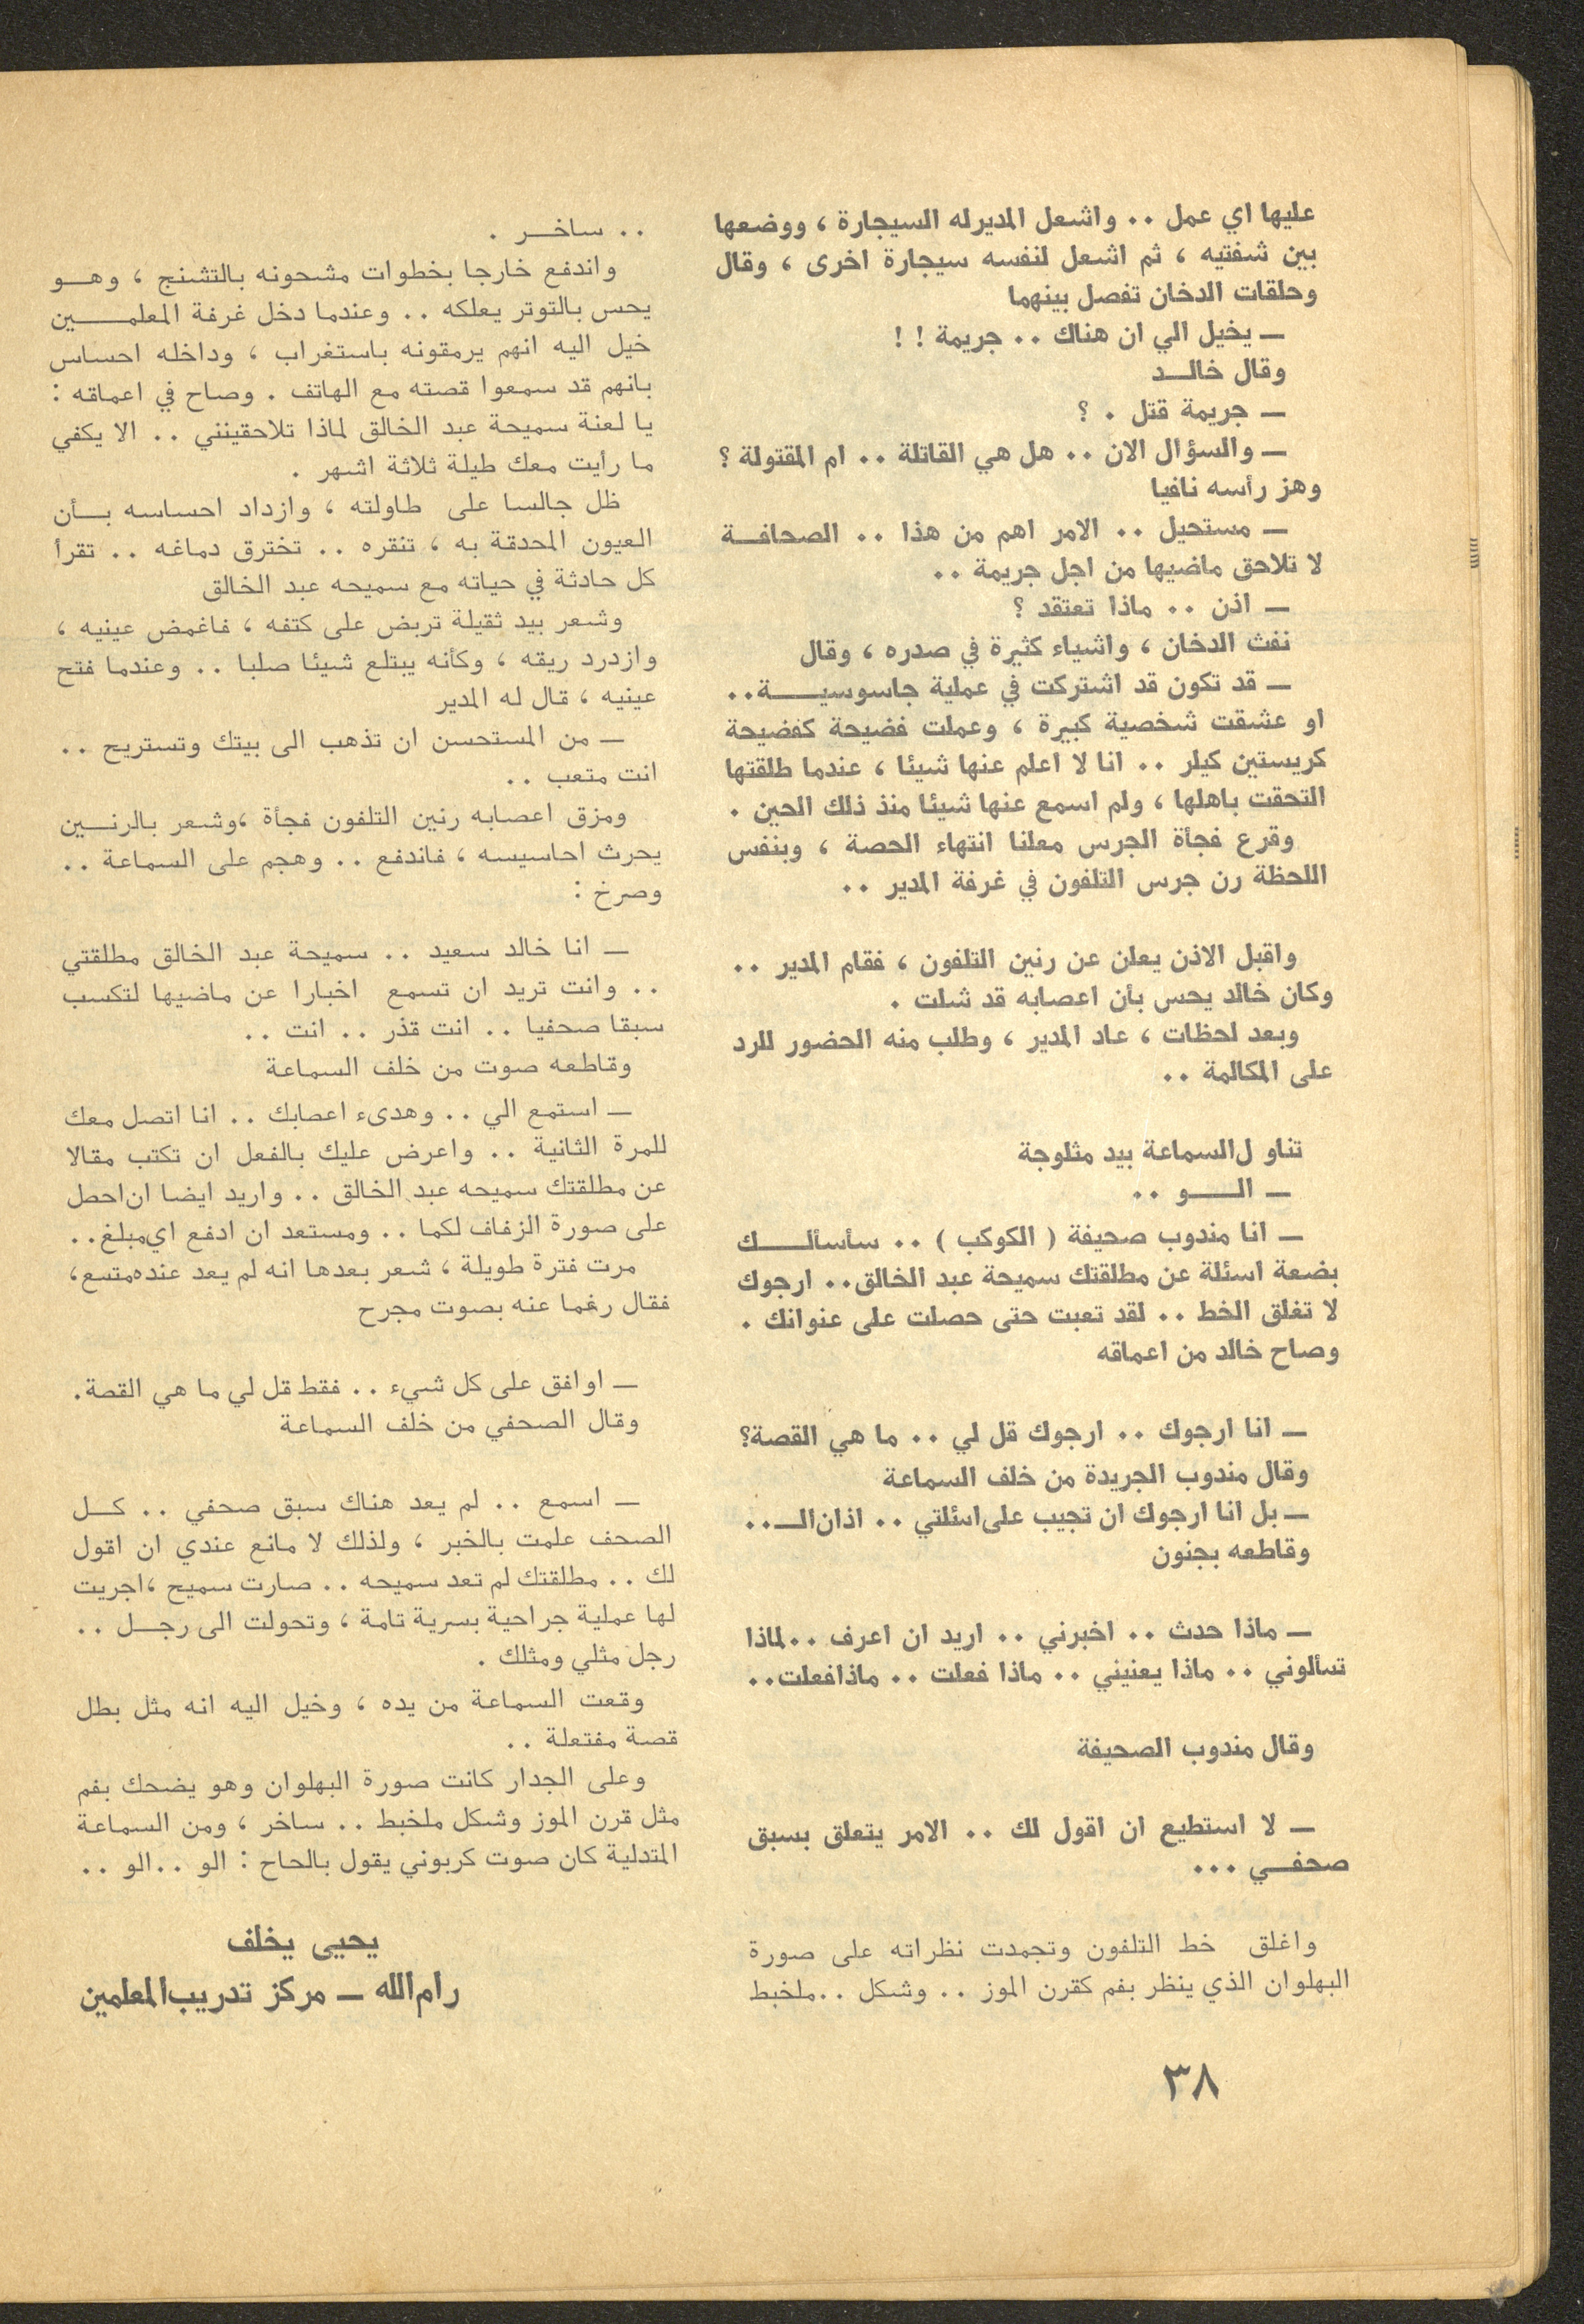 عليها اي عمل .. واشعل المديرله السيجارة ، ووضعها
بين شفتيه ، ثم اشعل لنفسه سيجارة اخرى ، وقال
وحلقات الدخان تفصل بينهما
— يخيل الي ان هناك .. جريمة ! !
وقال خالــد
— جريمة قتل . ؟
— والسؤال الان .. هل هي القاتلة .. ام المقتولة ؟
وهز رأسه نافيا
— مستحيل .. الامر اهم من هذا .. الصحافــة
لا تلاحق ماضيها من اجل جريمة ..
— اذن .. ماذا تعتقد ؟
نفث الدخان ، واشياء كثيرة في صدره ، وقال
— قد تكون قد اشتركت في عملية جاسوسيــــة..
او عشقت شخصية كبيرة ، وعملت فضيحة كفضيحة
كريستين كيلر .. انا لا اعلم عنها شيئا ، عندما طلقتها
التحقت باهلها ، ولم اسمع عنها شيئا منذ ذلك الحين .
وقرع فجأة الجرس معلنا انتهاء الحصة ، وبنفس
اللحظة رن جرس التلفون في غرفة المدير ..
واقبل الاذن يعلن عن رنين التلفون ، فقام المدير ..
وكان خالد يحس بأن اعصابه قد شلت .
وبعد لحظات ، عاد المدير ، وطلب منه الحضور للرد
على المكالمة ..
تناو ل‌السماعة بيد مثلوجة
— الــــو ..
— انا مندوب صحيفة ( الكوكب ) .. سأسألــــك
بضعة اسئلة عن مطلقتك سميحة عبد الخالق.. ارجوك
لا تغلق الخط .. لقد تعبت حتى حصلت على عنوانك .
وصاح خالد من اعماقه
— انا ارجوك .. ارجوك قل لي .. ما هي القصة؟
وقال مندوب الجريدة من خلف السماعة
— بل انا ارجوك ان تجيب على‌اسئلتي .. اذان‌الــ..
وقاطعه بجنون
— ماذا حدث .. اخبرني .. اريد ان اعرف ..لماذا
تسألوني .. ماذا يعنيني .. ماذا فعلت .. ماذافعلت..
وقال مندوب الصحيفة
— لا استطيع ان اقول لك .. الامر يتعلق بسبق
صحفــي ...
واغلق خط التلفون وتجمدت نظراته على صورة
البهلوان الذي ينظر بفم كقرن الموز .. وشكل ..ملخبط
.. ساخــر .
واندفع خارجا بخطوات مشحونه بالتشنج ، وهــو
يحس بالتوتر يعلكه .. وعندما دخل غرفة المعلمــــين
خيل اليه انهم يرمقونه باستغراب ، وداخله احساس
بانهم قد سمعوا قصته مع الهاتف . وصاح في اعماقه :
يا لعنة سميحة عبد الخالق لماذا تلاحقينني .. الا يكفي
ما رأيت معك طيلة ثلاثة اشهر .
ظل جالسا على طاولته ، وازداد احساسه بــأن
العيون المحدقة به ، تنقره .. تخترق دماغه .. تقرأ
كل حادثة في حياته مع سميحه عبد الخالق
وشعر بيد ثقيلة تربض على كتفه ، فاغمض عينيه ،
وازدرد ريقه ، وكأنه يبتلع شيئا صلبا .. وعندما فتح
عينيه ، قال له المدير
— من المستحسن ان تذهب الى بيتك وتستريح ..
انت متعب ..
ومزق اعصابه رنين التلفون فجأة ،وشعر بالرنــين
يحرث احاسيسه ، فاندفع .. وهجم على السماعة ..
وصرخ :
— انا خالد سعيد .. سميحة عبد الخالق مطلقتي
.. وانت تريد ان تسمع اخبارا عن ماضيها لتكسب
سبقا صحفيا .. انت قذر .. انت ..
وقاطعه صوت من خلف السماعة
— استمع الي .. وهدىء اعصابك .. انا اتصل معك
للمرة الثانية .. واعرض عليك بالفعل ان تكتب مقالا
عن مطلقتك سميحه عبد الخالق .. واريد ايضا ان‌احصل
على صورة الزفاف لكما .. ومستعد ان ادفع اي‌مبلغ..
مرت فترة طويلة ، شعر بعدها انه لم يعد عنده‌متسع،
فقال رغما عنه بصوت مجرح
— اوافق على كل شيء .. فقط قل لي ما هي القصة.
وقال الصحفي من خلف السماعة
— اسمع .. لم يعد هناك سبق صحفي .. كــل
الصحف علمت بالخبر ، ولذلك لا مانع عندي ان اقول
لك .. مطلقتك لم تعد سميحه .. صارت سميح ،اجريت
لها عملية جراحية بسرية تامة ، وتحولت الى رجــل ..
رجل مثلي ومثلك .
وقعت السماعة من يده ، وخيل اليه انه مثل بطل
قصة مفتعلة ..
وعلى الجدار كانت صورة البهلوان وهو يضحك بفم
مثل قرن الموز وشكل ملخبط .. ساخر ، ومن السماعة
المتدلية كان صوت كربوني يقول بالحاح : الو ..الو ..
يحيى يخلف
رام‌الله — مركز تدريب‌المعلمين
٣٨